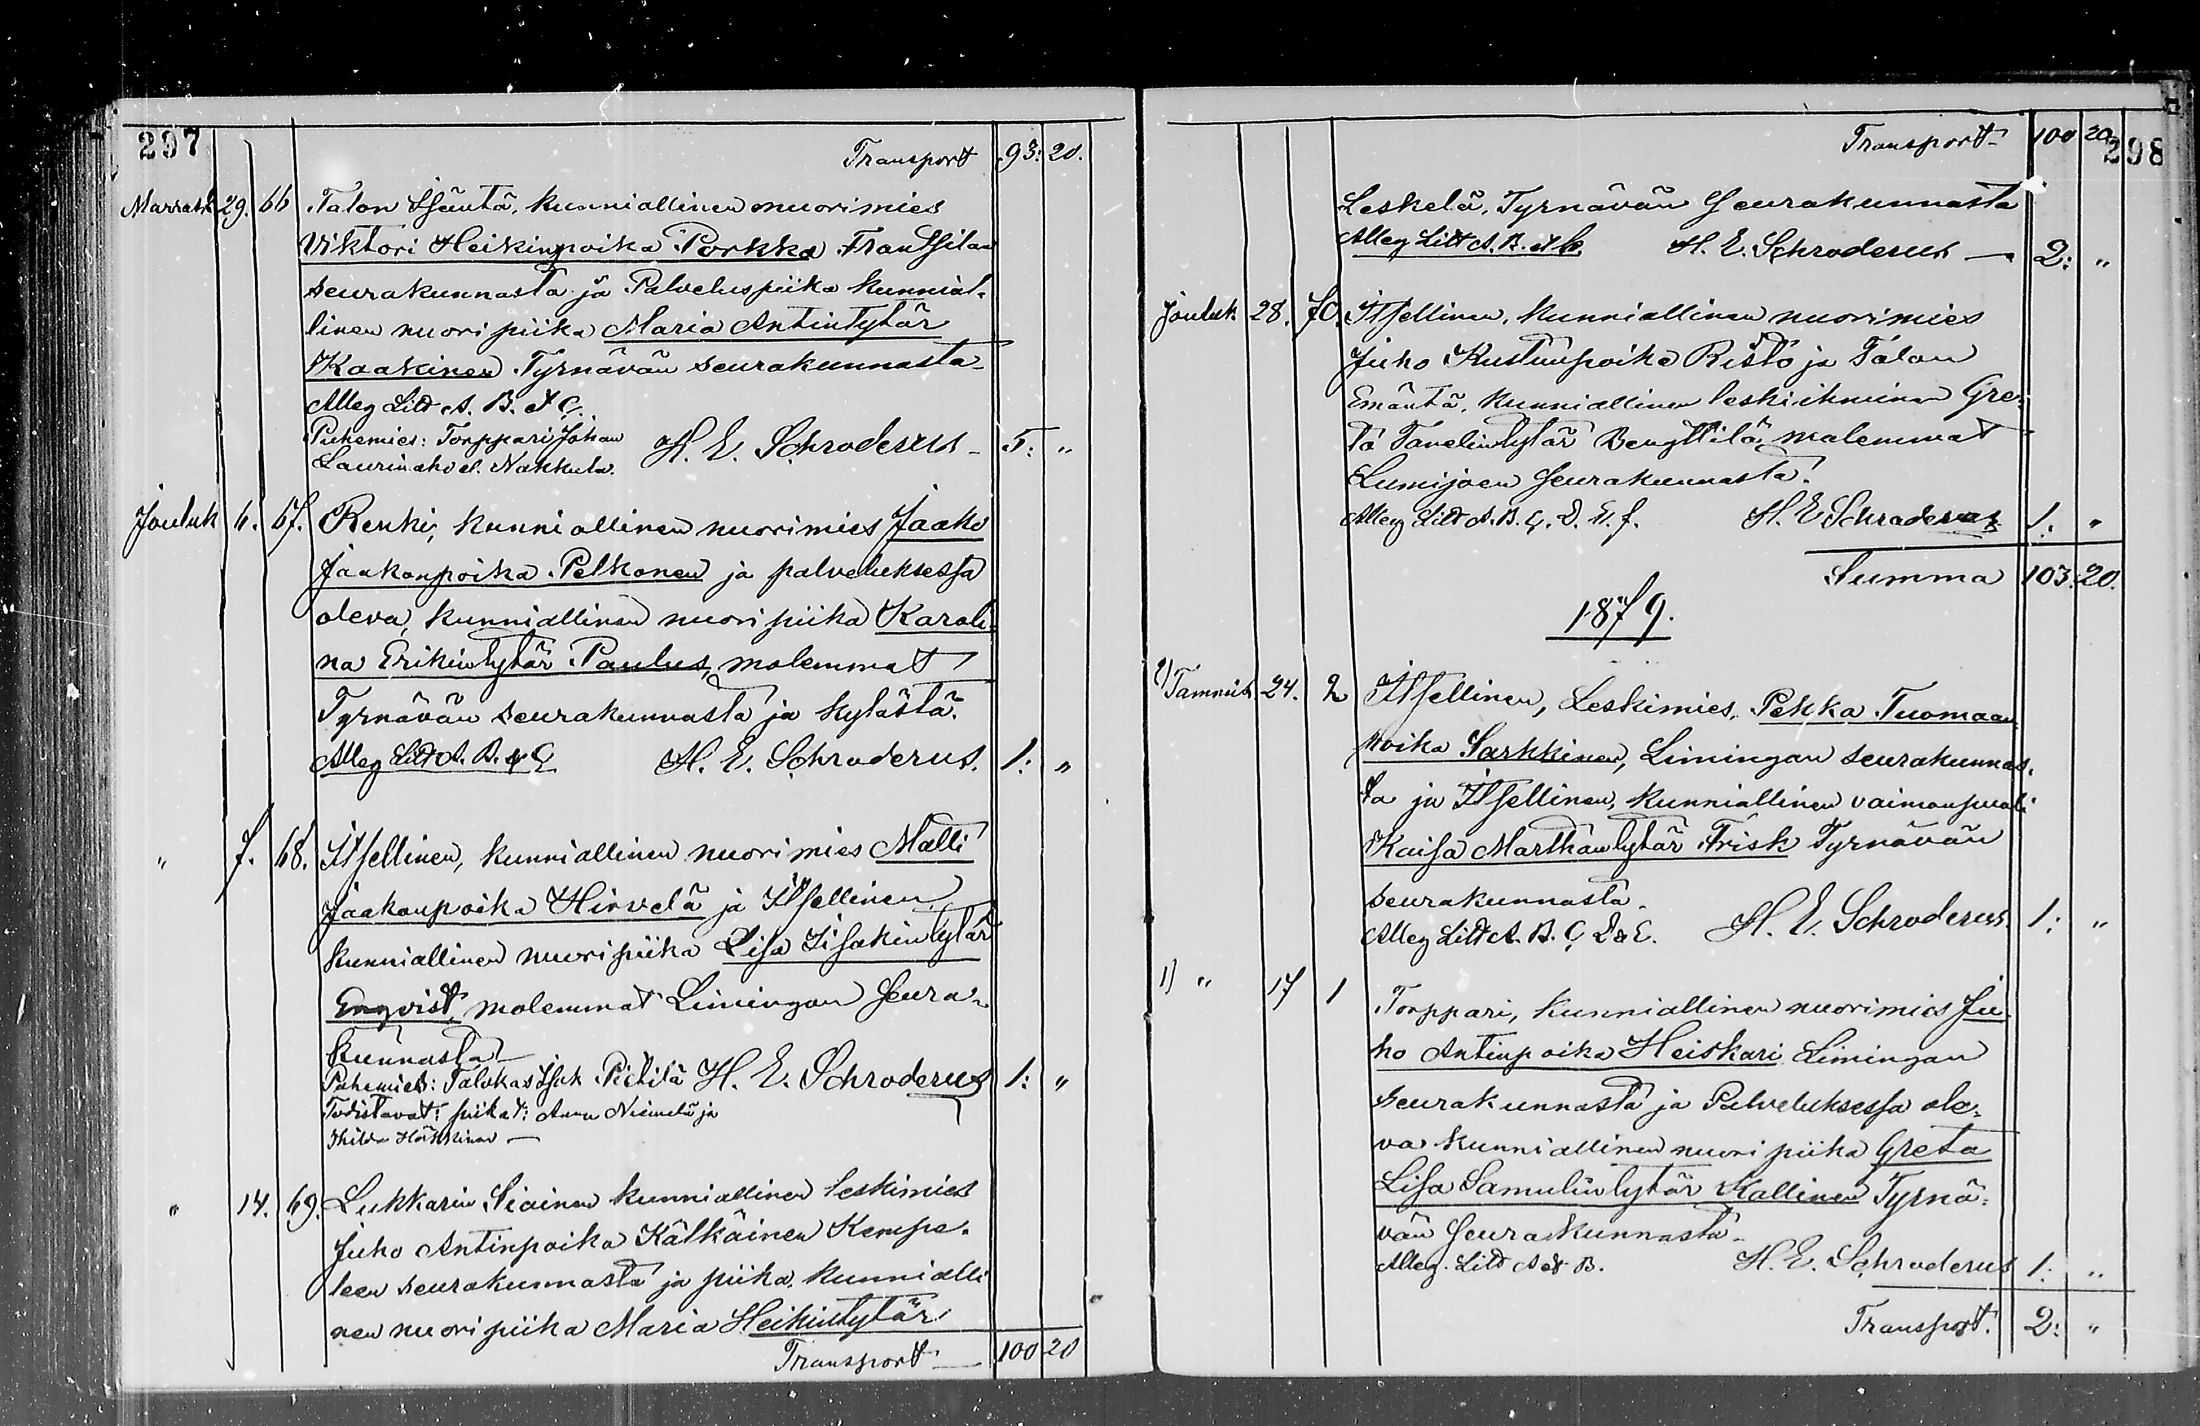 297
Transport 93: 20.
Marrask 29. 66 Talon Isäntä, kunniallinen nuorimies
Viktori Heikinpoika Porkka Frantsilan
seurakunnasta ja Palveluspiika kunnial-
linen nuori piika Maria Antintytär
Kaakinen Tyrnävän seurakunnasta
Alleg Litt A. B. & C.
Puhemies: Torppari Johan
Laurinaho el. Nakkula. H. E. Schroderus - 5: "
Jouluk 6. 67. Renki, kunniallinen nuorimies Jaako
Jaakonpoika Pelkonen ja palveluksessa
oleva, kunniallinen nuori piika Karoli-
na Erikintytär Paulus, molemmat
Tyrnävän seurakunnasta ja kylästä.
Alleg Litt A. B. & C H. E. Schroderus. 1: "
" 7. 68. Itsellinen, kunniallinen nuorimies Matti
Jaakonpoika Hirvelä ja Itsellinen,
kunniallinen nuori piika Lisa Iisakintytär
Enqvist, molemmat Limingan seura-
kunnasta
Puhemies: Talokas Isak Pietilä H. E. Schroderus 1: "
Todistavat: piikat: Anna Niemelä ja
Hilda Hörkkinen
" 14. 69. Lukkarin Siainen kunniallinen leskimies
Juho Antinpoika Kälkäinen Kempe-
leen seurakunnasta ja piika kunnialli
nen nuori piika Maria Heikintytär
Transport 100 20
Transport 100 20
298
Leskelä, Tyrnävän Seurakunnasta
Alleg Litt A. B. & C. H. E. Schroderus 2: "
Jouluk. 28. 70. Itsellinen, kunniallinen nuorimies
Juho Kustunpoika Risto ja Talon
Emäntä, kunniallinen leski ihminen Gre-
ta Tanelintytär Bengttilä, molemmat
Lumijoen Seurakunnasta.
Alleg Litt A. B. C. D. E. f. H. E Schroderus 1: "
Summa 103: 20.
1879.
2) Tammik. 24. 2 Itsellinen, Leskimies, Pekka Tuomaan
poika Sarkkinen, Limingan seurakunnas-
ta ja Itsellinen, kunniallinen vaimonpuoli
Kaisa Marthantytär Frisk Tyrnävän
seurakunnasta.
Alleg Litt A. B. C D & E. H. E. Schroderus. 1: "
1) " 17 1 Torppari, kunniallinen nuorimies Ju-
ho Antinpoika Heiskari Limingan
seurakunnasta ja Palveluksessa ole-
va kunniallinen nuori piika Greta
Lisa Samulintytär Kallinen Tyrnä-
vän Seurakunnasta
Alleg. Litt A & B. H. E. Schroderus 1: "
Transport. 2: "